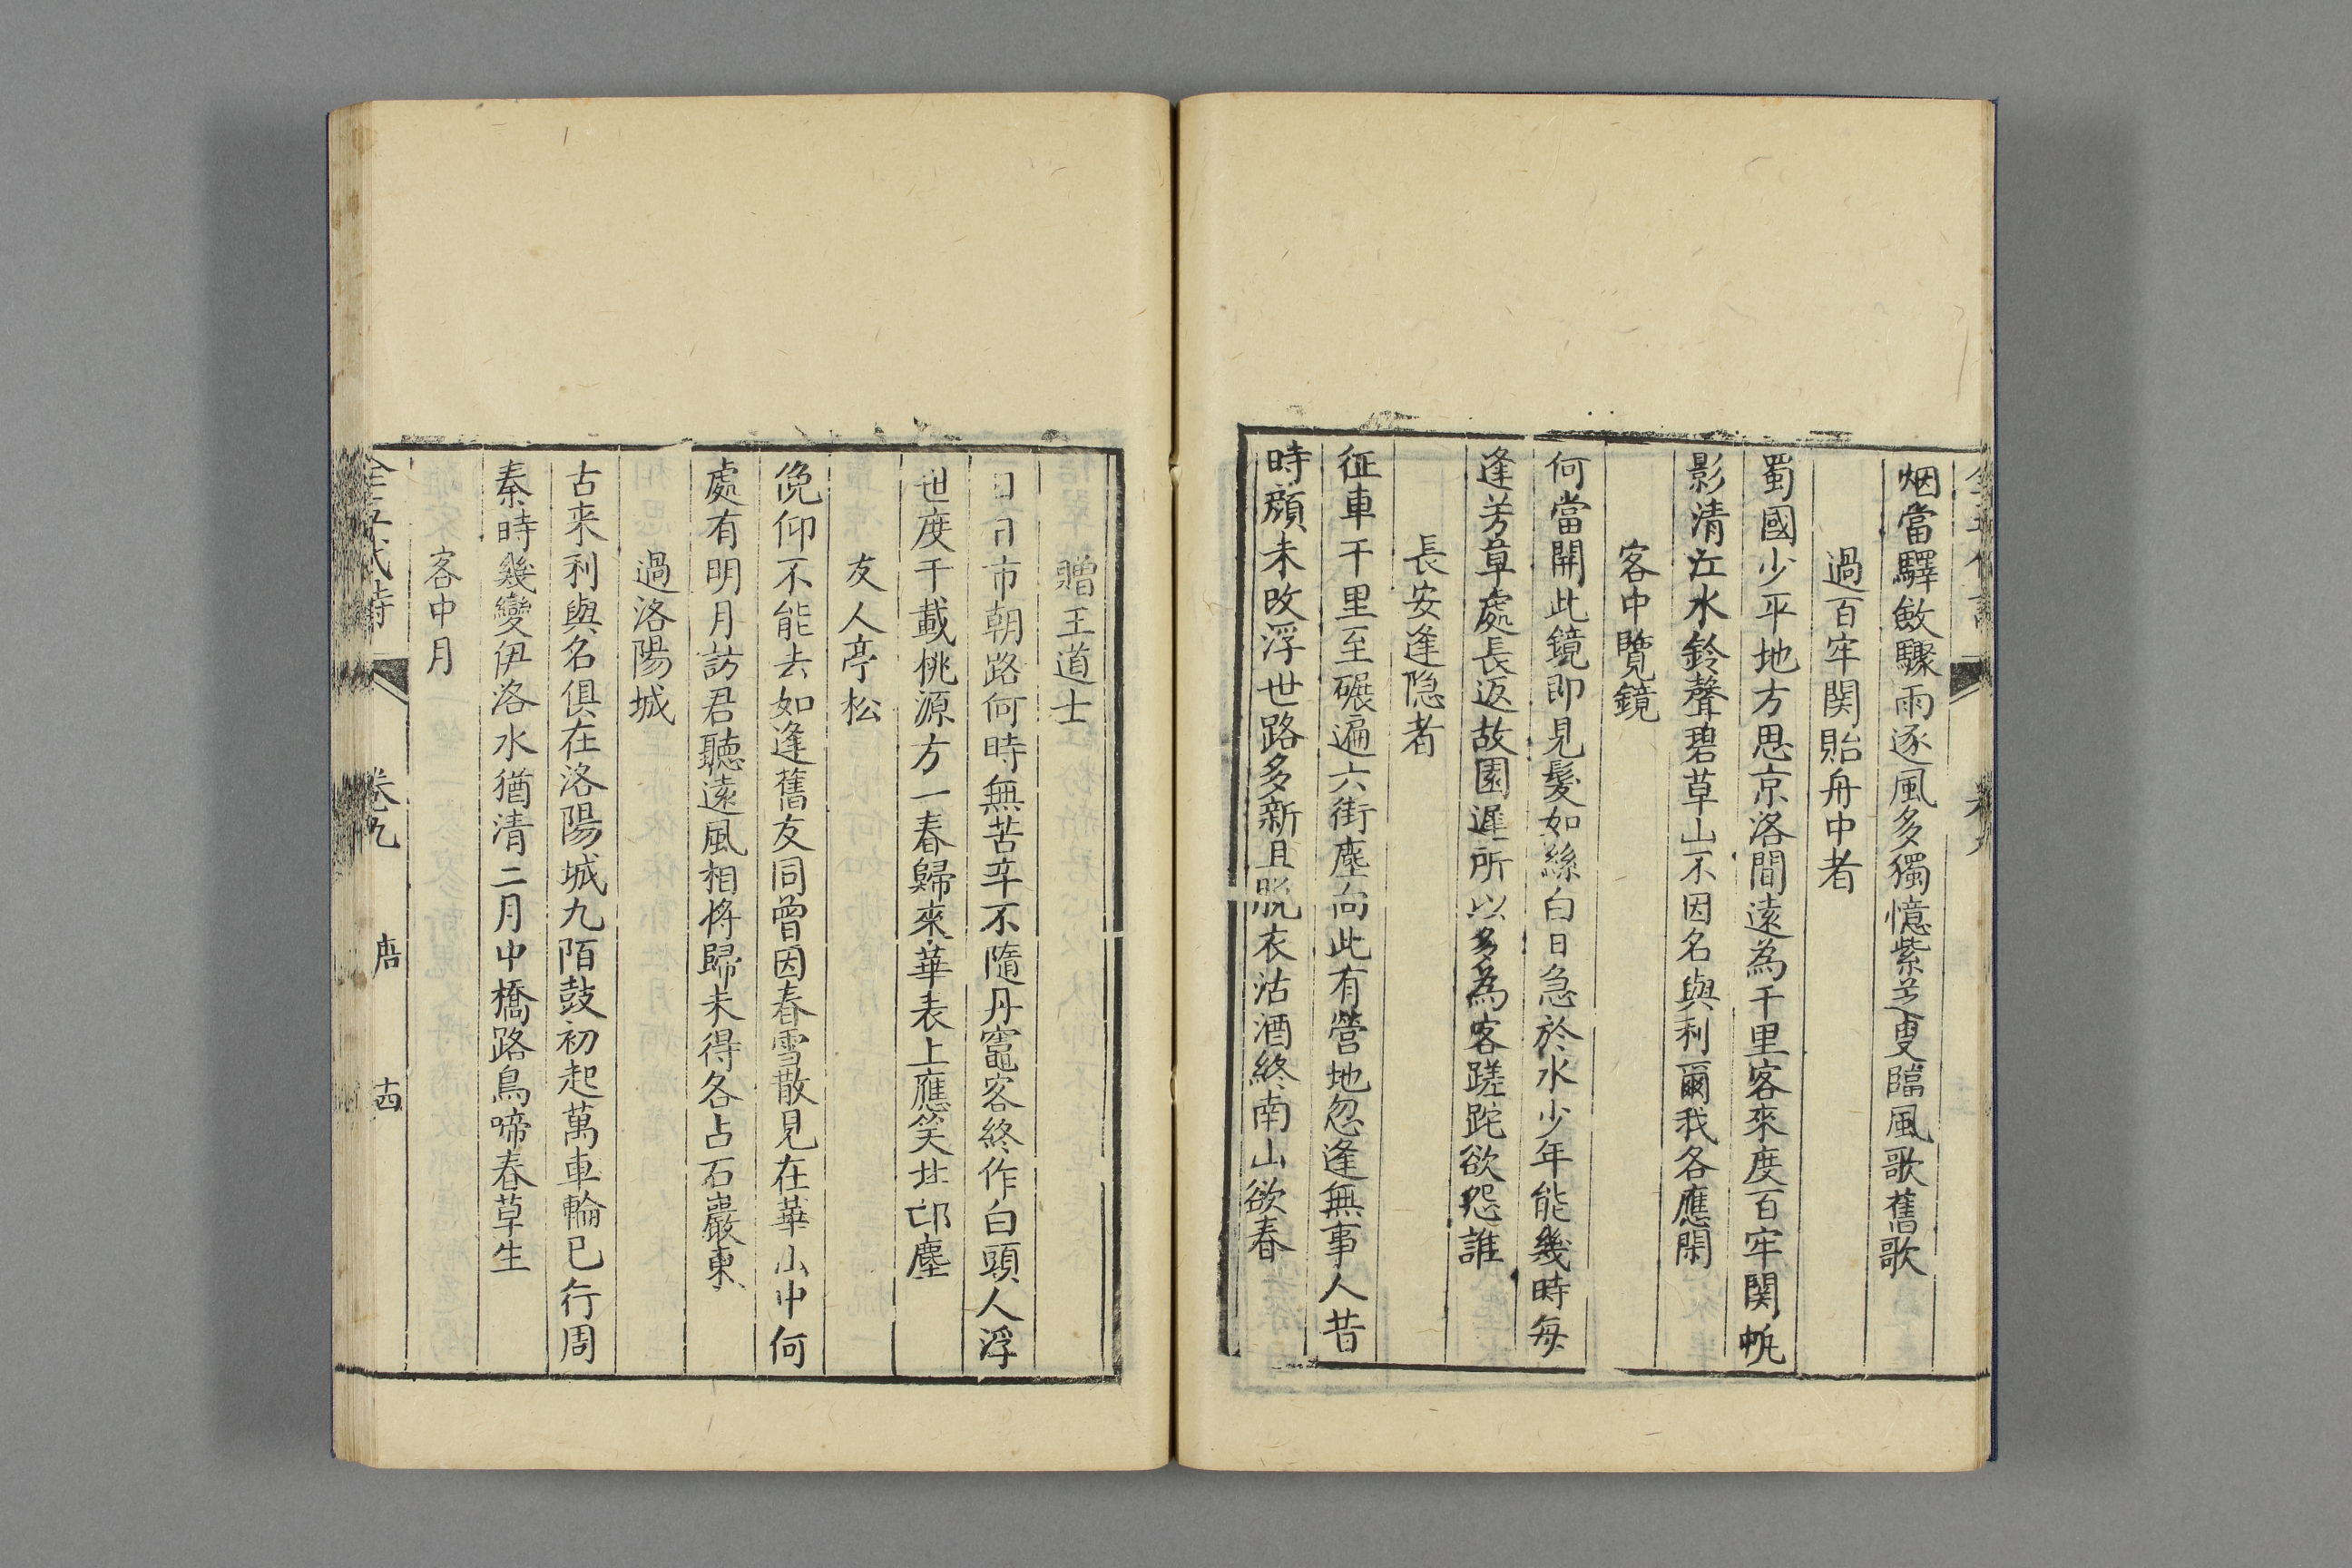 烟當驛斂驟雨逐風多獨憶紫芝叟臨風歌舊歌
過百牢関貽舟中者
蜀國少平地方思京洛間遠為千里客來度百牢関帆
影清江水鈴聲碧草山不因名與利爾我各應閑
客中覽鏡
何當開此鏡即見髮如絲白日急於水少年能幾時每
逢芳草處長返故園遲所以多為客蹉跎欲怨誰
長安逢隐者
征車千里至碾遍六街塵向此有營地忽逢無事人昔
時顏未改浮世路多新且脱衣沽酒終南山欲春
贈王道士
日日市朝路何時無苦辛不隨丹竈客終作白頭人浮
世度千載桃源方一春歸來華表上應笑北邙塵
友人亭松
俛仰不能去如逢舊友同曾因春雪散見在華山中何
處有明月訪君聽遠風相将歸未得各占石巖東
過洛陽城
古来利與名俱在洛陽城九陌鼓初起萬車輪已行周
秦時幾變伊洛水猶清二月中橋路鳥啼春草生
客中月
全五代詩 卷九 唐 十四